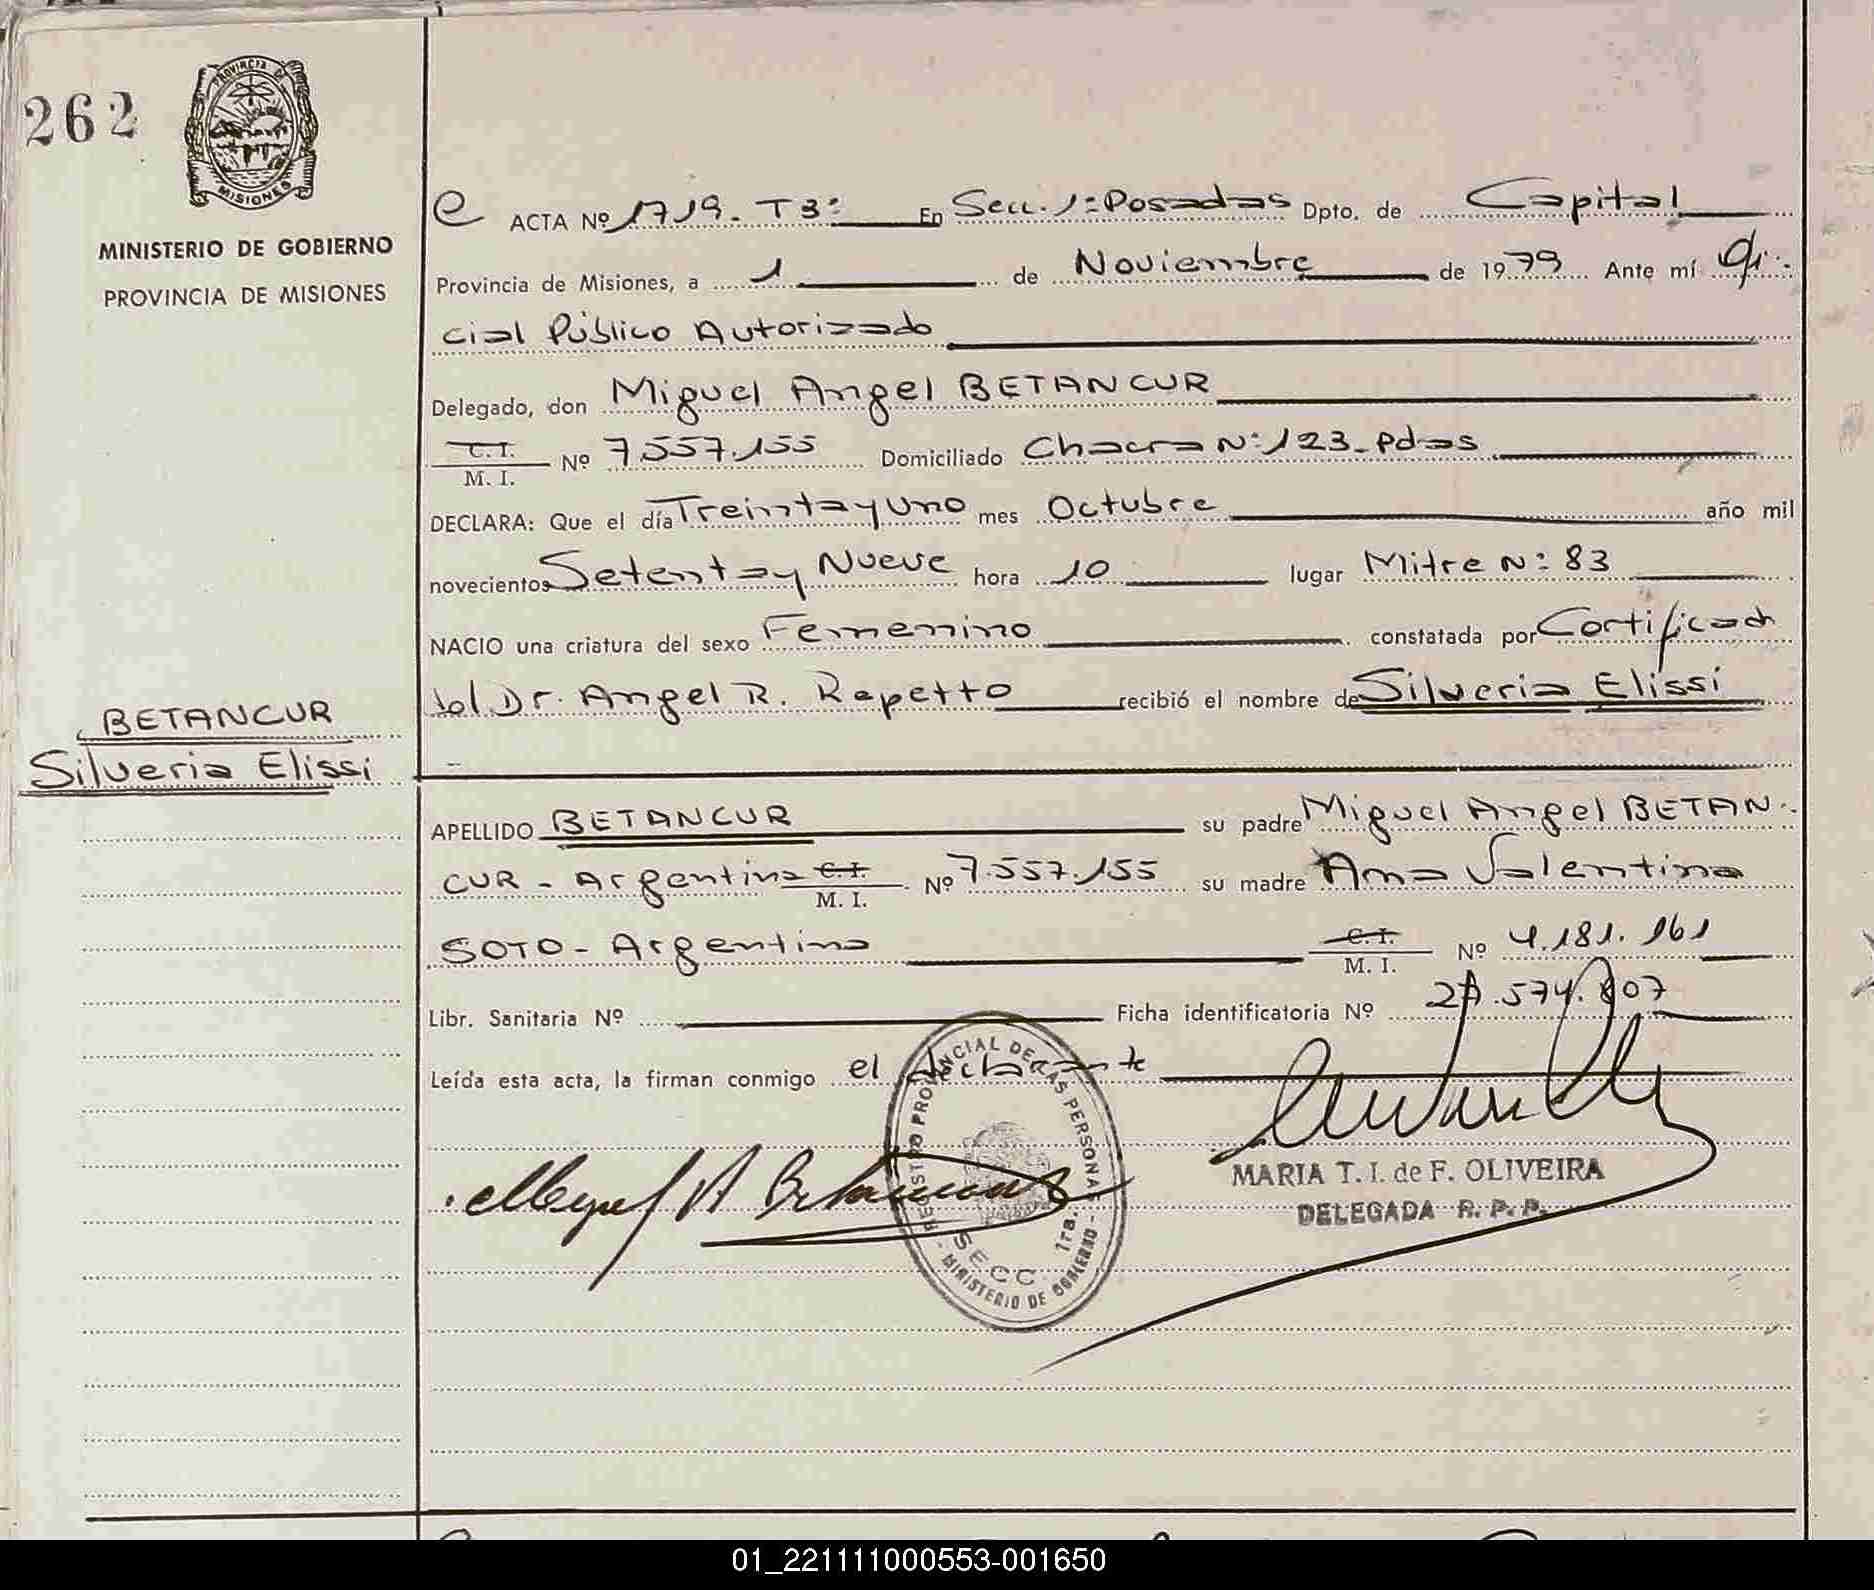 262
PROVINCIA DE
MISIONES
MINISTERIO DE GOBIERNO
PROVINCIA DE MISIONES
BETANCUR
Silveria Elissi
e ACTA Nº 1719. T3º En Secc. 1º Posadas Dpto. de Capital
Provincia de Misiones, a 1 de Noviembre de 1979 Ante mí Ofi-
cial Público Autorizado
Delegado, don Miguel Angel BETANCUR
C. I.
M. I. Nº 7.557.155 Domiciliado Chacra Nº 123-Pdas
DECLARA: Que el día Treintayuno mes Octubre año mil
novecientos Setentay Nueve hora 10 lugar Mitre Nº 83
NACIO una criatura del sexo Femenino constatada por Certificado
del Dr. Angel R. Repetto recibió el nombre de Silveria Elissi
APELLIDO BETANCUR su padre Miguel Angel BETAN-
CUR - Argentino C. I. M. I. Nº 7.557.155 su madre Ana Valentina
SOTO - Argentina C. I. M. I. Nº 4.181.161
Libr. Sanitaria Nº Ficha identificatoria Nº
Leída esta acta, la firman conmigo el declarante
Miguel A Betancur
REGISTRO PROVINCIAL DE LAS PERSONAS
SECC. 1ra.
- MINISTERIO DE GOBIERNO -
MARIA T. I. de F. OLIVEIRA
DELEGADA R. P. P.
01_221111000553-001650